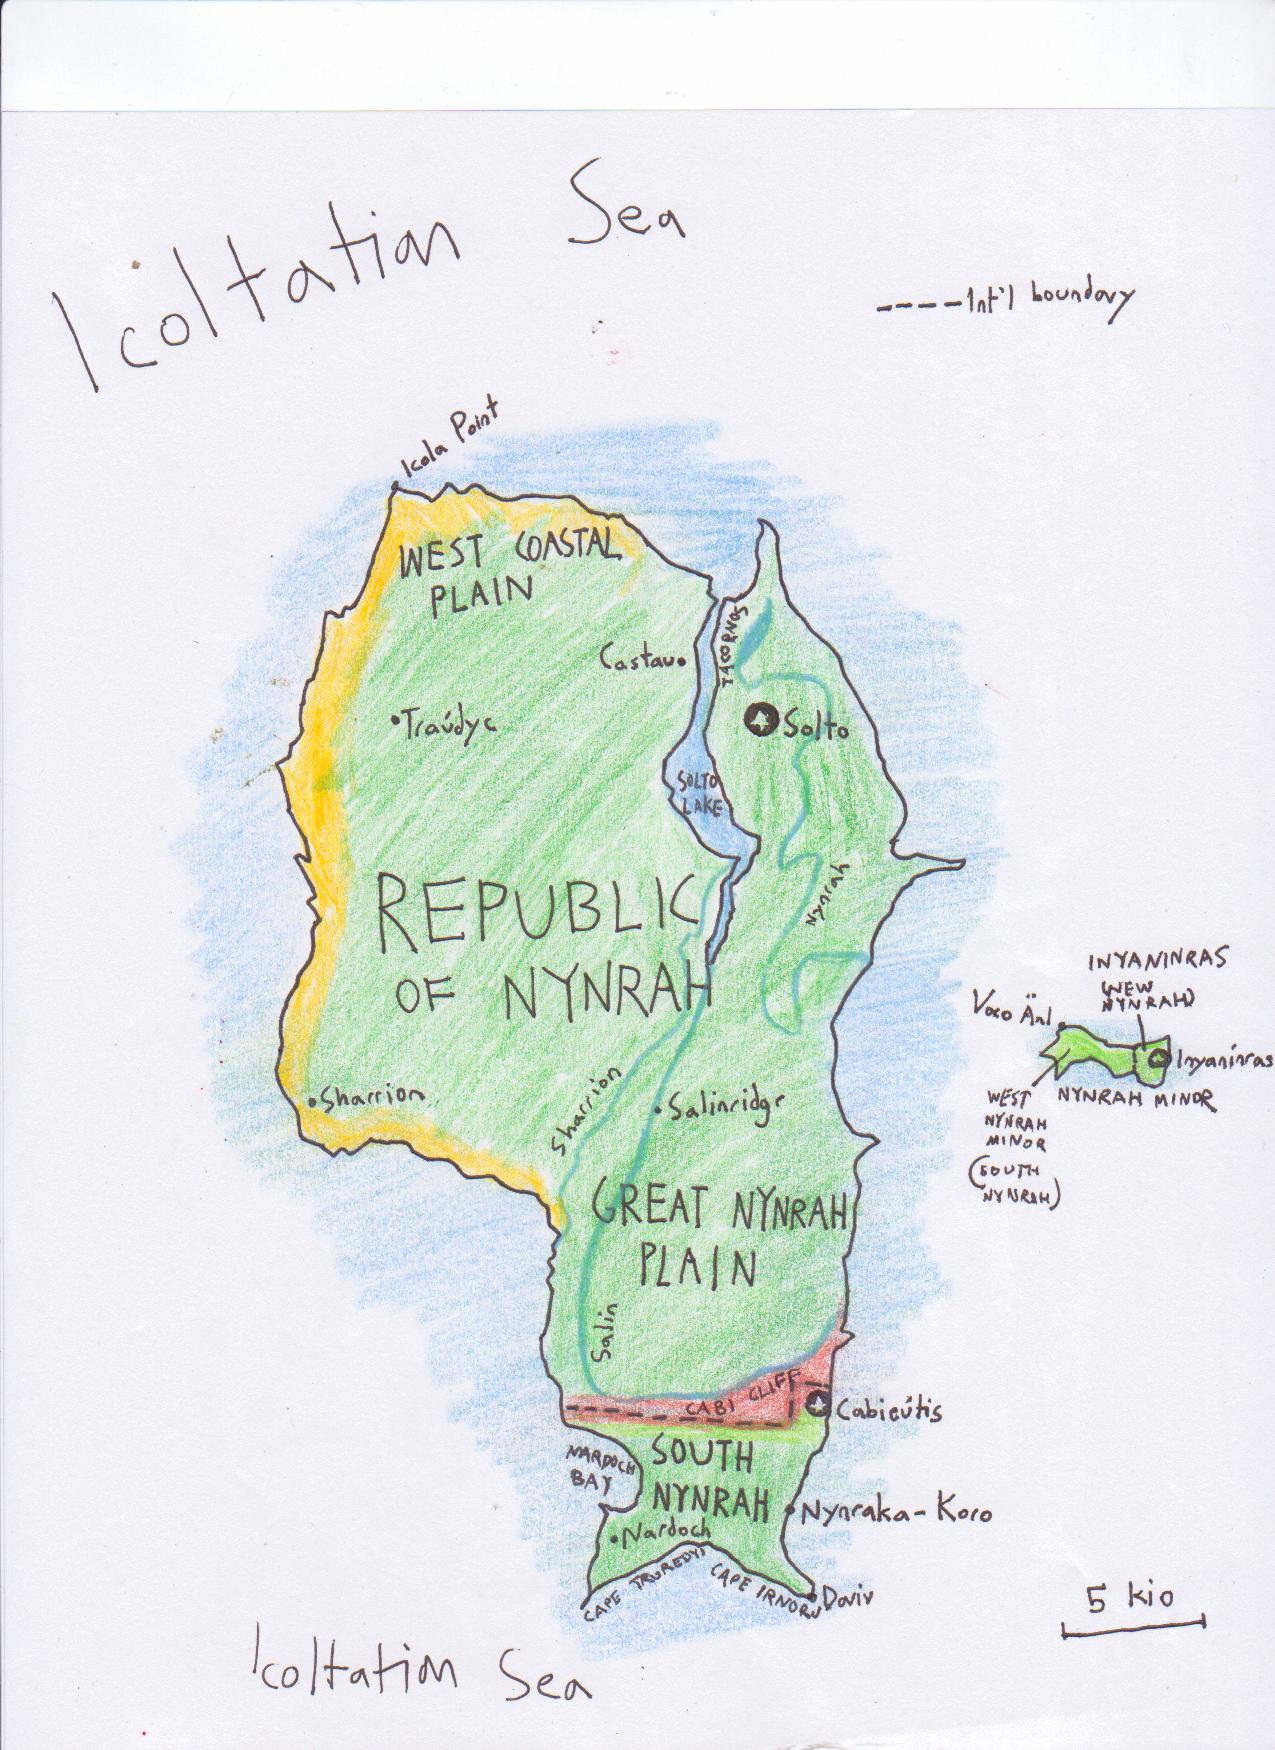 Icoltation Sea
---- Int'l boundary
Icola Point
WEST COASTAL
PLAIN
TACORNOS
Castau
Traúdyc
Solto
SOLTO
LAKE
REPUBLIC
OF NYNRAH
Nynrah
INYANINRAS
(NEW
NYNRAH)
Voco Änl
Inyaninras
WEST
NYNRAH
MINOR
(SOUTH
NYNRAH)
NYNRAH MINOR
Sharrion
Sharrion
Salinridge
GREAT NYNRAH
PLAIN
Salin
CABI CLIFF
Cabieútis
NARDOCH
BAY
SOUTH
NYNRAH
Nynraka-Koro
Nardoch
CAPE TRUREDYI
CAPE IRNORU
Doviv
5 kio
Icoltation Sea